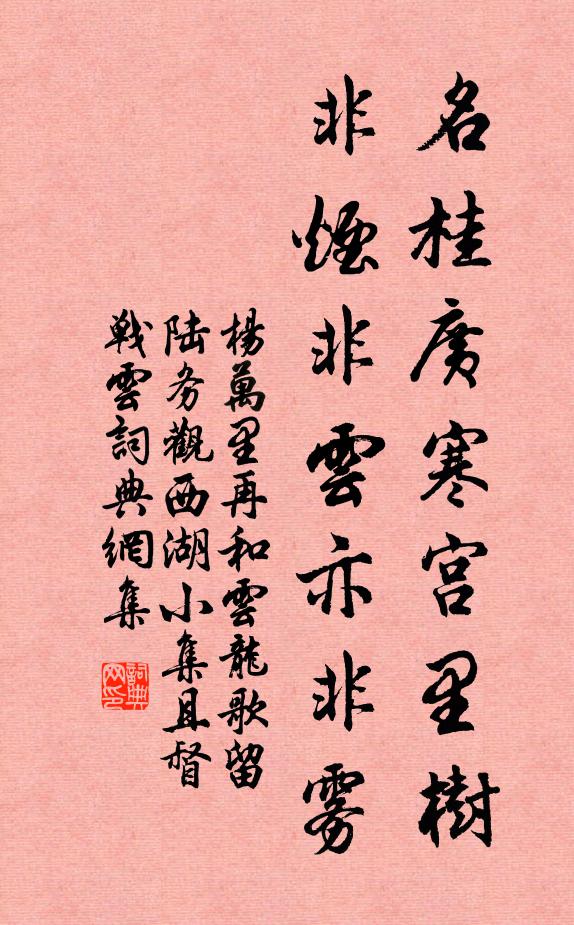 名桂廣寒宮里樹
非煙非雲亦非雾
楊萬里再和雲龍歌留
陆务觀西湖小集且督
戦雲詞典網集
詞典网印